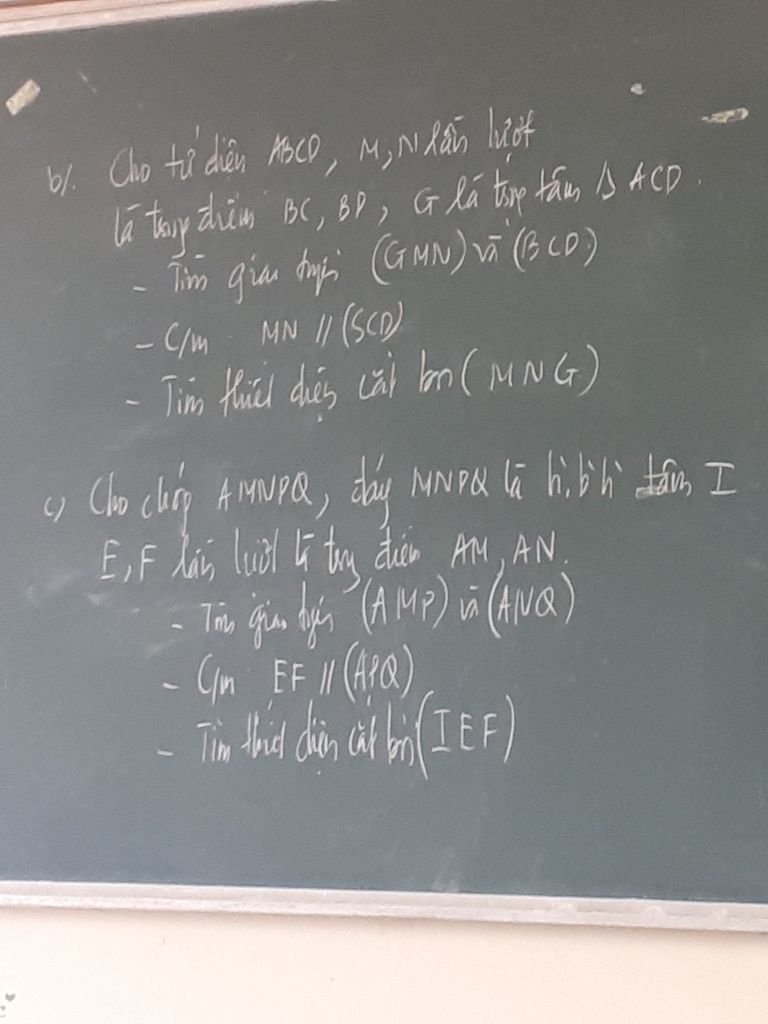 b/. Cho tứ diện ABCD, M, N lần lượt
là trung điểm BC, BD, G là trọng tâm Δ ACD.
- Tìm giao tuyến (GMN) và (BCD)
- C/m MN // (SCD)
- Tìm thiết diện cắt bởi (MNG)
c) Cho chóp AMNPQ, đáy MNPQ là h.b.h tâm I
E, F lần lượt là trung điểm AM, AN.
- Tìm giao tuyến (AMP) và (ANQ)
- C/m EF // (APQ)
- Tìm thiết diện cắt bởi (IEF)